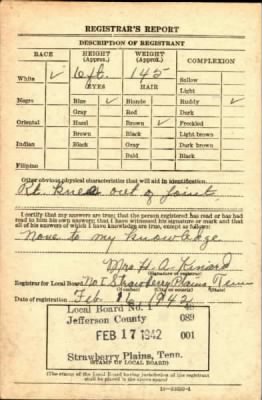 REGISTRAR'S REPORT
DESCRIPTION OF REGISTRANT
RACE HEIGHT (Approx.) WEIGHT (Approx.) COMPLEXION
White ✓ 6 ft. 145 Sallow
EYES HAIR Light
Negro Blue ✓ Blonde Ruddy ✓
Gray Red Dark
Oriental Hazel Brown ✓ Freckled
Brown Black Light brown
Indian Black Gray Dark brown
Bald Black
Filipino
Other obvious physical characteristics that will aid in identification
Rt. Knee out of joint
I certify that my answers are true; that the person registered has read or has had
read to him his own answers; that I have witnessed his signature or mark and that
all of his answers of which I have knowledge are true, except as follows:
None to my knowledge
Mrs H. A. Kinard
(Signature of registrar)
Registrar for Local Board No 1 Strawberry Plains Tenn
(Number) (City or county) (State)
Date of registration Feb 16, 1942
Local Board No. 1
Jefferson County 089
FEB 17 1942 001
Strawberry Plains, Tenn.
(STAMP OF LOCAL BOARD)
(The stamp of the Local Board having jurisdiction of the registrant
shall be placed in the above space)